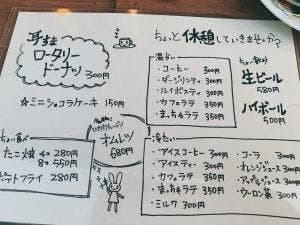 ちょっと休憩していきませんか?
ロータリー
ドーナツ
300円
☆ミニショコラケーキ 150円
ちょい食べ
たこ焼 4コ 280円
8コ 550円
ポテトフライ 280円
オムレツ
680円
温かい
・コーヒー 300円
・ダージリンティ 300円
・ルイボスティ 300円
・カフェラテ 350円
・まっちゃラテ 350円
生ビール
580円
ハイボール
500円
冷たい
・アイスコーヒー 300円
・アイスティー 300円
・カフェラテ 350円
・まっちゃラテ 350円
・ミルク 300円
・コーラ 300円
・オレンジジュース 300円
・アップルジュース 300円
・ウーロン茶 300円